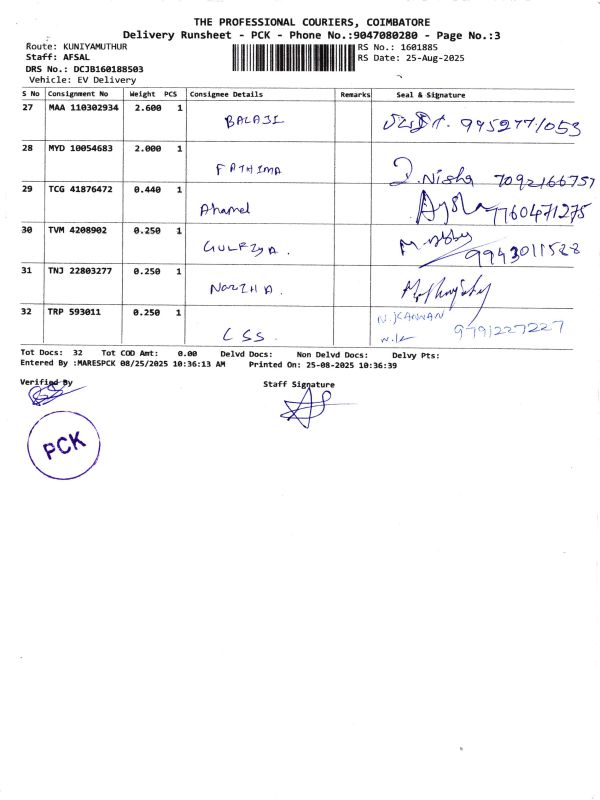 THE PROFESSIONAL COURIERS, COIMBATORE
Delivery Runsheet - PCK - Phone No.:9047080280 - Page No.:3
Route: KUNIYAMUTHUR
RS No.: 1601885
Staff: AFSAL
RS Date: 25-Aug-2025
DRS No.: DCJB160188503
Vehicle: EV Delivery
S No Consignment No Weight PCS Consignee Details Remarks Seal & Signature
27 MAA 110302934 2.600 1
BALAJI
28 MYD 10054683 2.000 1
FATHIMA
Nisha 7092166757
29 TCG 41876472 0.440 1
Ahamed
7760471275
30 TVM 4208902 0.250 1
9943011528
31 TNJ 22803277 0.250 1
32 TRP 593011 0.250 1
N. KANNAN
CSS. 9791227227
Tot Docs: 32 Tot COD Amt: 0.00 Delvd Docs: Non Delvd Docs: Delvy Pts:
Entered By :MARESPCK 08/25/2025 10:36:13 AM Printed On: 25-08-2025 10:36:39
Verified By Staff Signature
PCK